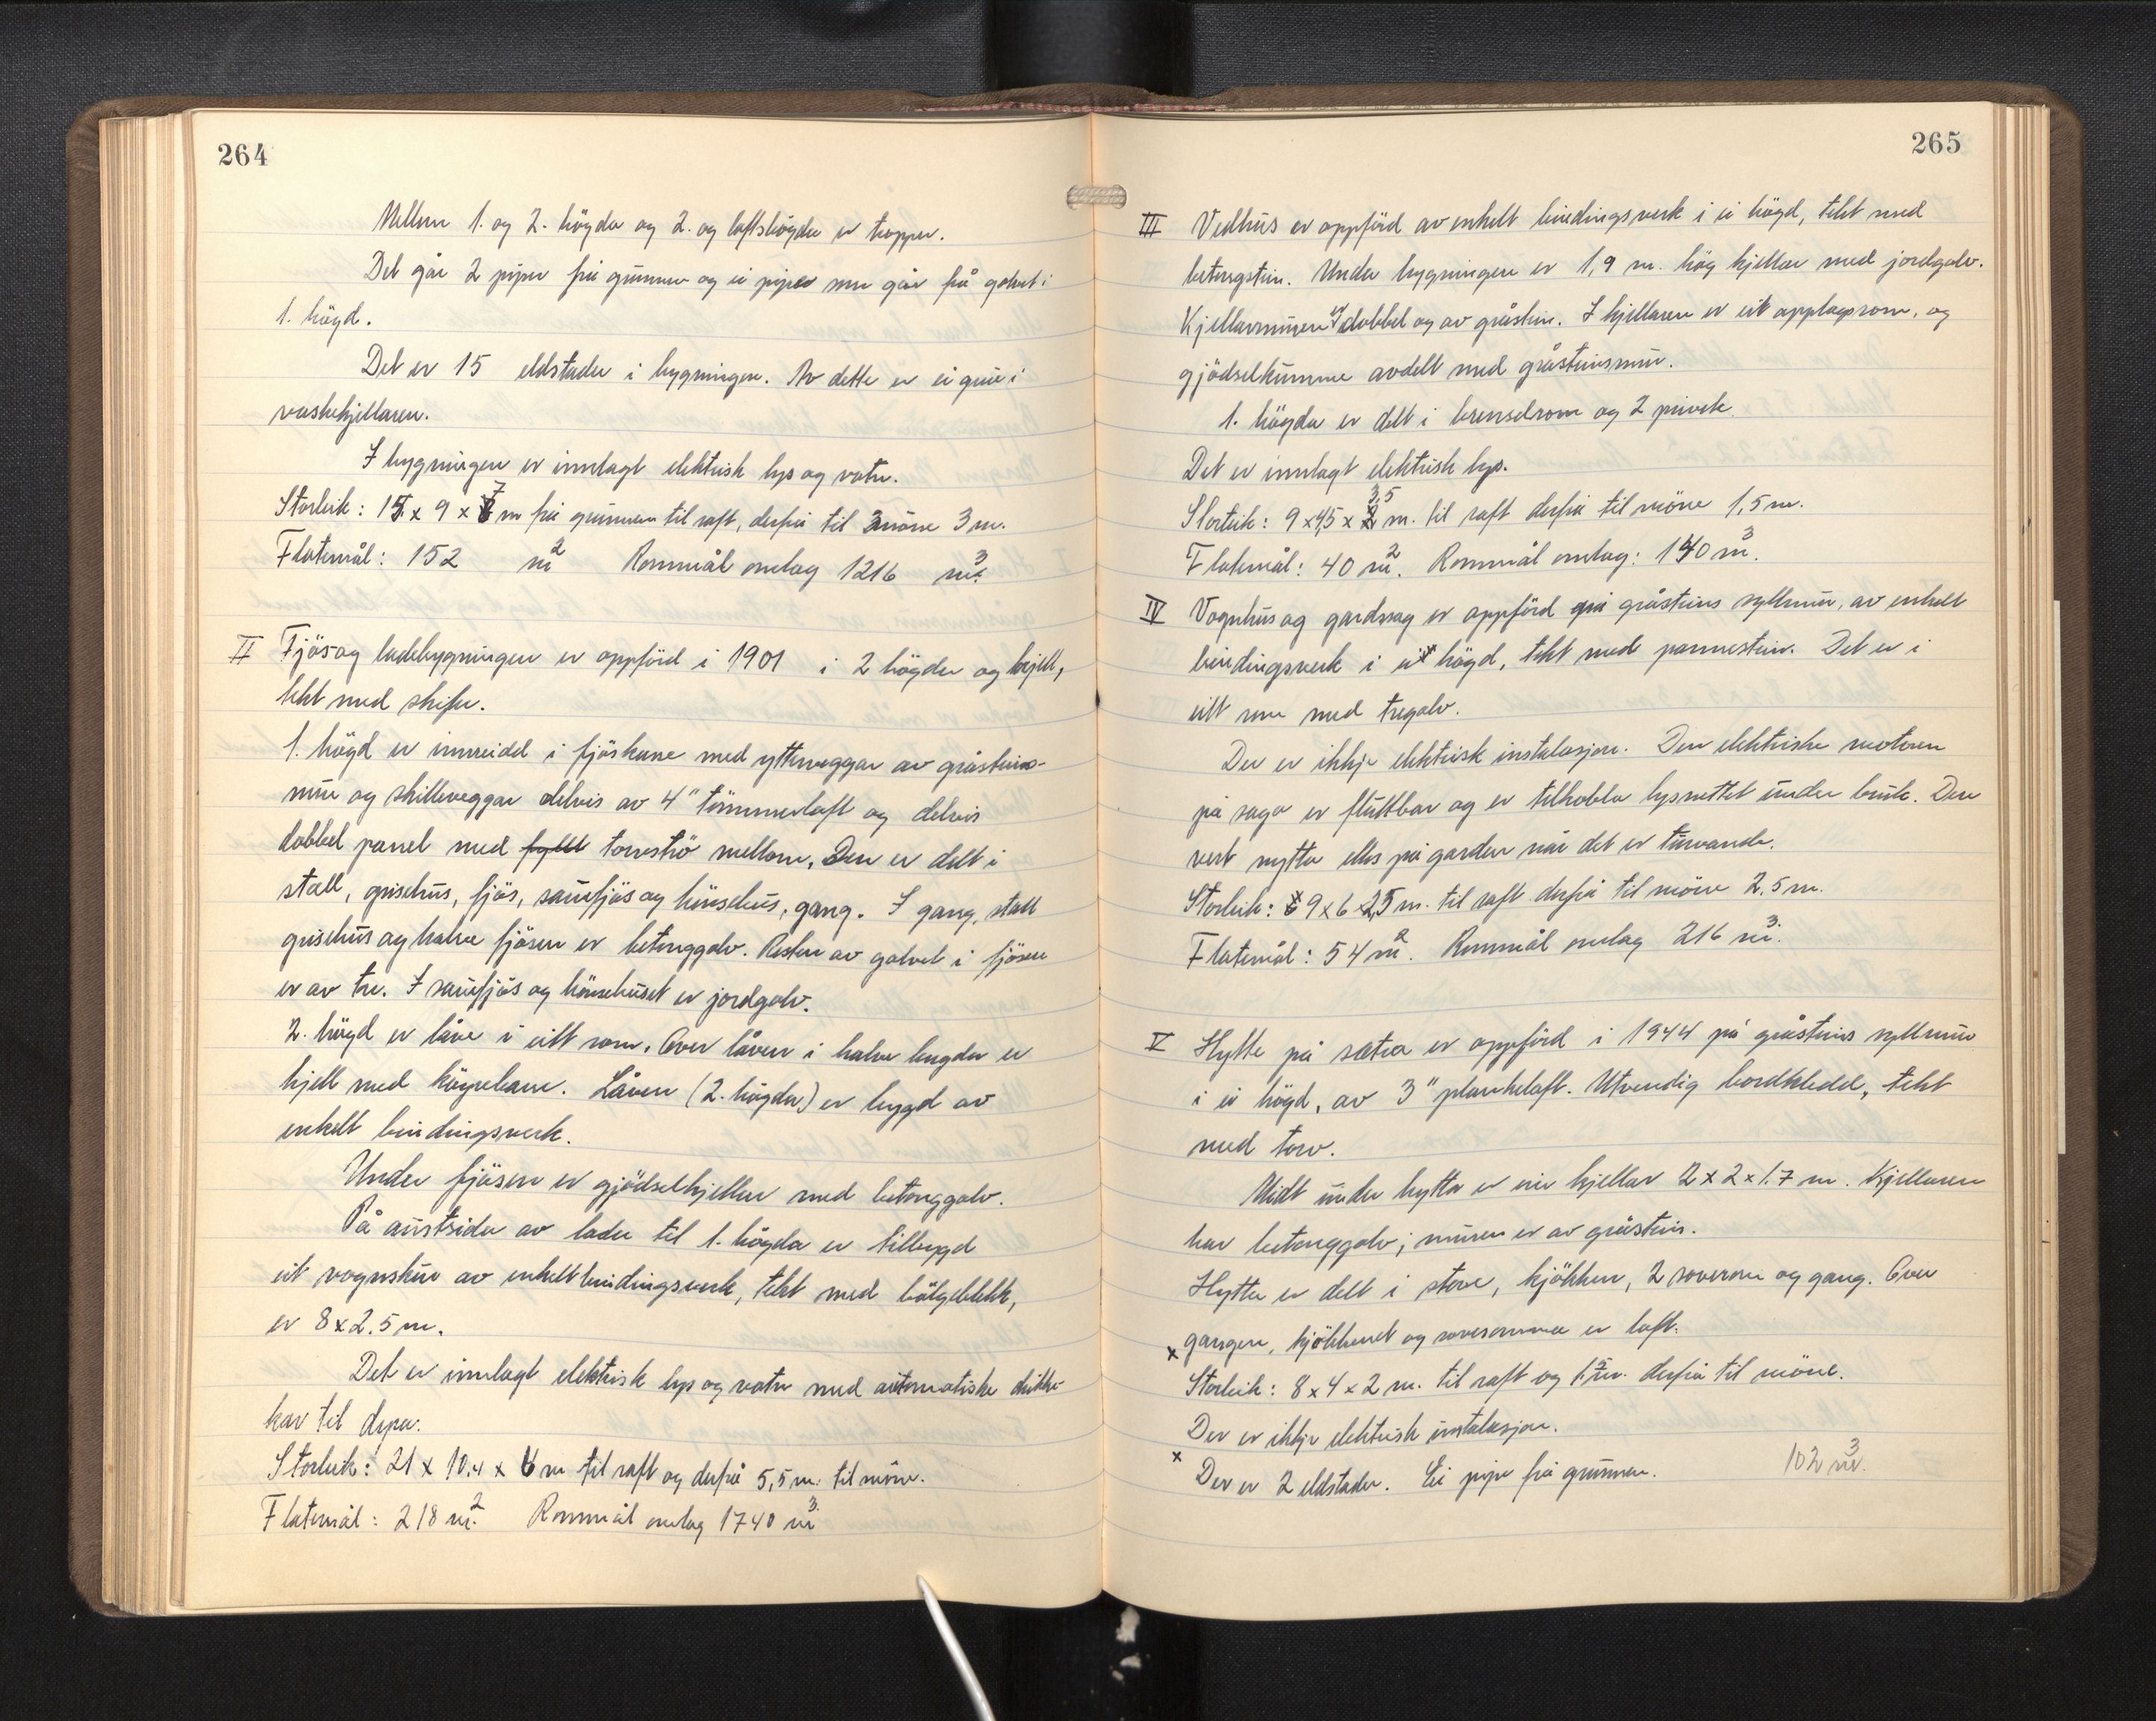 264
Mellom 1. og 2. högda og 2. og loftshögda er trapper.
Det går 2 piper frå grunnen og ei pipe som går frå golvet i
1. högd.
Det er 15 eldstader i bygningen. Av dette er ei grue i
vaskekjellaren.
I bygningen er innlagt elektrisk lys og vatn.
Storleik: 15 x 9 x 7 m frå grunnen til raft, derfrå til möne 3 m.
Flatemål: 152 m² Rommål omlag 1216 m³.
II Fjös og ladebygningen er oppförd i 1901 i 2 högder og hjell,
tekt med skifer.
1. högd er innreidd i fjöskane med ytterveggar av gråsteins-
mur og skilleveggar delvis av 4" tömmerlaft og delvis
dobbel panel med fyllt torvströ mellom. Den er delt i
stall, grisehus, fjös, sauefjös og hönsehus, gang. I gang, stall
grisehus og halve fjösen er betonggolv. Resten av golvet i fjösen
er av tre. I sauefjös og hönsehuset er jordgolv.
2. högd er låve i eitt rom. Over låven i halve lengda er
hjell med köyrebane. Låven (2. högda) er bygd av
enkelt bindingsverk.
Under fjösen er gjödselkjellar med betonggolv.
På austsida av lada til 1. högda er tilbygd
eit vognskur av enkelt bindingsverk, tekt med bölgeblekk,
er 8 x 2.5 m.
Det er innlagt elektrisk lys og vatn med automatiske drikke-
kar til dyra.
Storleik: 21 x 10.4 x 6 m til raft og derfrå 5,5 m. til möne.
Flatemål: 218 m². Rommål omlag 1740 m³
265
III Vedhus er oppförd av enkelt bindingsverk i ei högd, tekt med
betongstein. Under bygningen er 1,9 m. hög kjellar med jordgolv.
Kjellarmuren er dobbel og av gråstein. I kjellaren er eit opplagsrom, og
gjödselkumme avdelt med gråsteinsmur.
1. högda er delt i brenselrom og 2 privet.
Det er innlagt elektrisk lys.
Storleik: 9 x 4,5 x 3,5 m. til raft derfrå til möne 1,5 m.
Flatemål: 40 m². Rommål omlag: 140 m³.
IV Vognhus og gardssag er oppförd på gråsteins syllmur, av enkelt
bindingsverk i ei högd, tekt med pannestein. Det er i
eitt rom med tregolv.
Der er ikkje elektrisk instalasjon. Den elektriske motoren
på saga er fluttbar og er tilkobla lysnettet under bruk. Den
vert nytta elles på garden når det er turvande.
Storleik: 9 x 6 x 2,5 m. til raft derfrå til möne 2.5 m.
Flatemål: 54 m². Rommål omlag 216 m³.
V Hytte på sætra er oppförd i 1944 på gråsteins syllmur
i ei högd, av 3" plankelaft. Utvendig bordkledd, tekt
med torv.
Midt under hytta er ein kjellar 2 x 2 x 1.7 m. Kjellaren
har betonggolv; muren er av gråstein.
Hytta er delt i stove, kjökken, 2 soverom og gang. Over
x gangen, kjökkenet og soveromma er loft.
Storleik: 8 x 4 x 2 m. til raft og 1.5 m. derfrå til möne.
Der er ikkje elektrisk instalasjon.
x Der er 2 eldstader. Ei pipe frå grunnen. 102 m³.